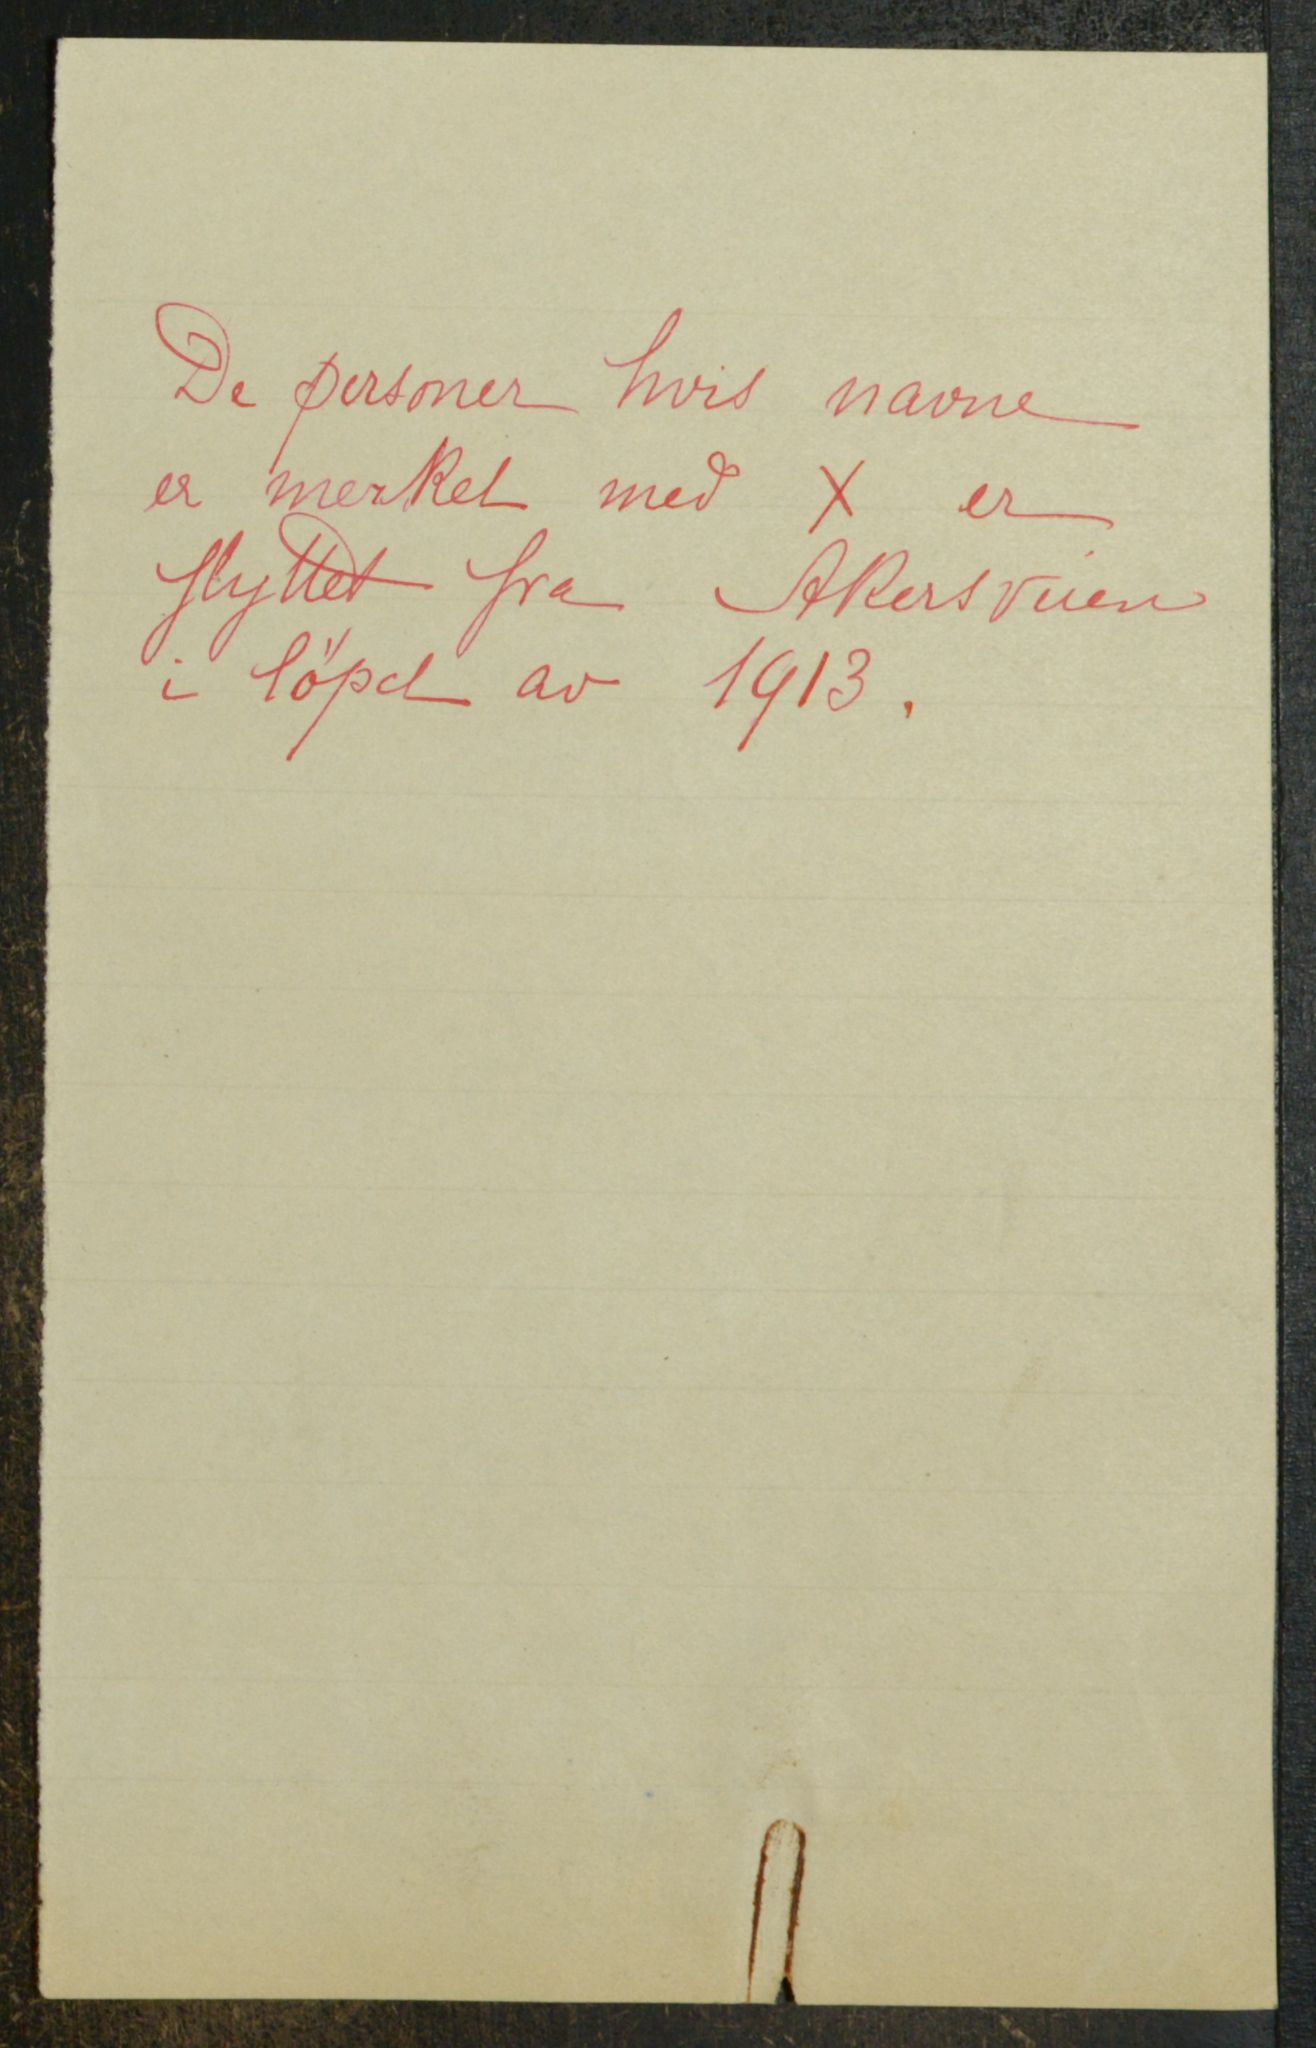 De personer hvis navne
er merket med X er
flyttet fra Akersveien
i löpet av 1913.